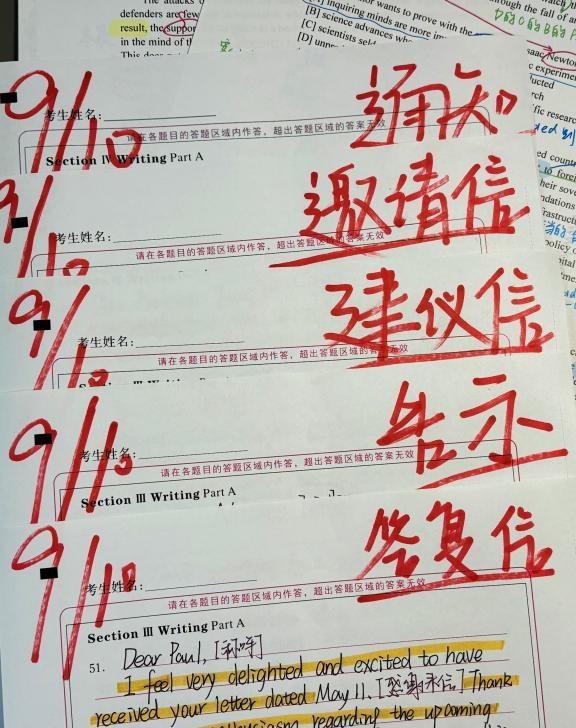 defenders are few
result, the suppor
in the mind of t
[A] inquiring minds are more im
[B] science advances wh
[C] scientists sel
wants to prove with the
ough the fall of a
saac Newton
c experimen
ucted
rch
fic researc
ed coun
to forei
heir sove
ndations
frastruct
policy o
9/10
考生姓名:
通知
请在各题目的答题区域内作答，超出答题区域的答案无效
Section IV Writing Part A
9/10
考生姓名:
邀请信
请在各题目的答题区域内作答，超出答题区域的答案无效
9/10
考生姓名:
建议信
请在各题目的答题区域内作答，超出答题区域的答案无效
9/10
考生姓名:
告示
请在各题目的答题区域内作答，超出答题区域的答案无效
Section III Writing Part A
9/10
考生姓名:
答复信
请在各题目的答题区域内作答，超出答题区域的答案无效
Section III Writing Part A
51. Dear Paul, [称呼]
I feel very delighted and excited to have
received your letter dated May 11. [感谢来信] Thank
regarding the upcoming